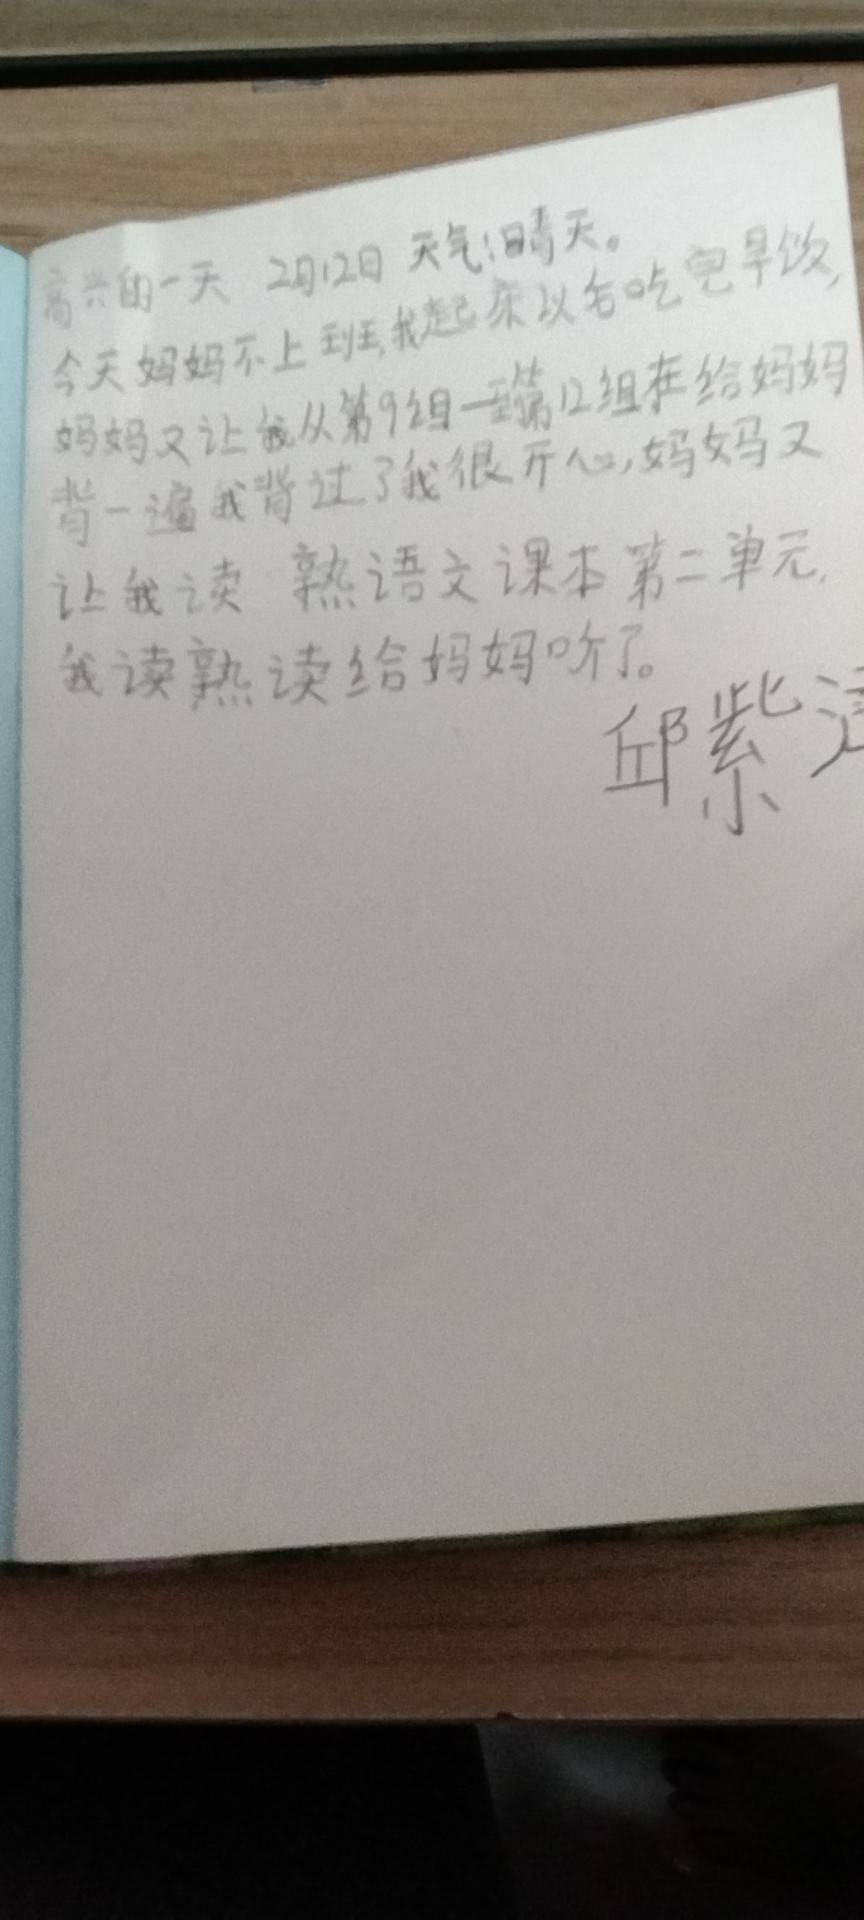 高兴的一天 2月12日 天气:晴天。
今天妈妈不上班,我起床以后吃完早饭,
妈妈又让我从第9组一到第12组在给妈妈
背一遍我背过了我很开心,妈妈又
让我读 熟语文课本第二单元,
我读熟读给妈妈听了。
邱紫